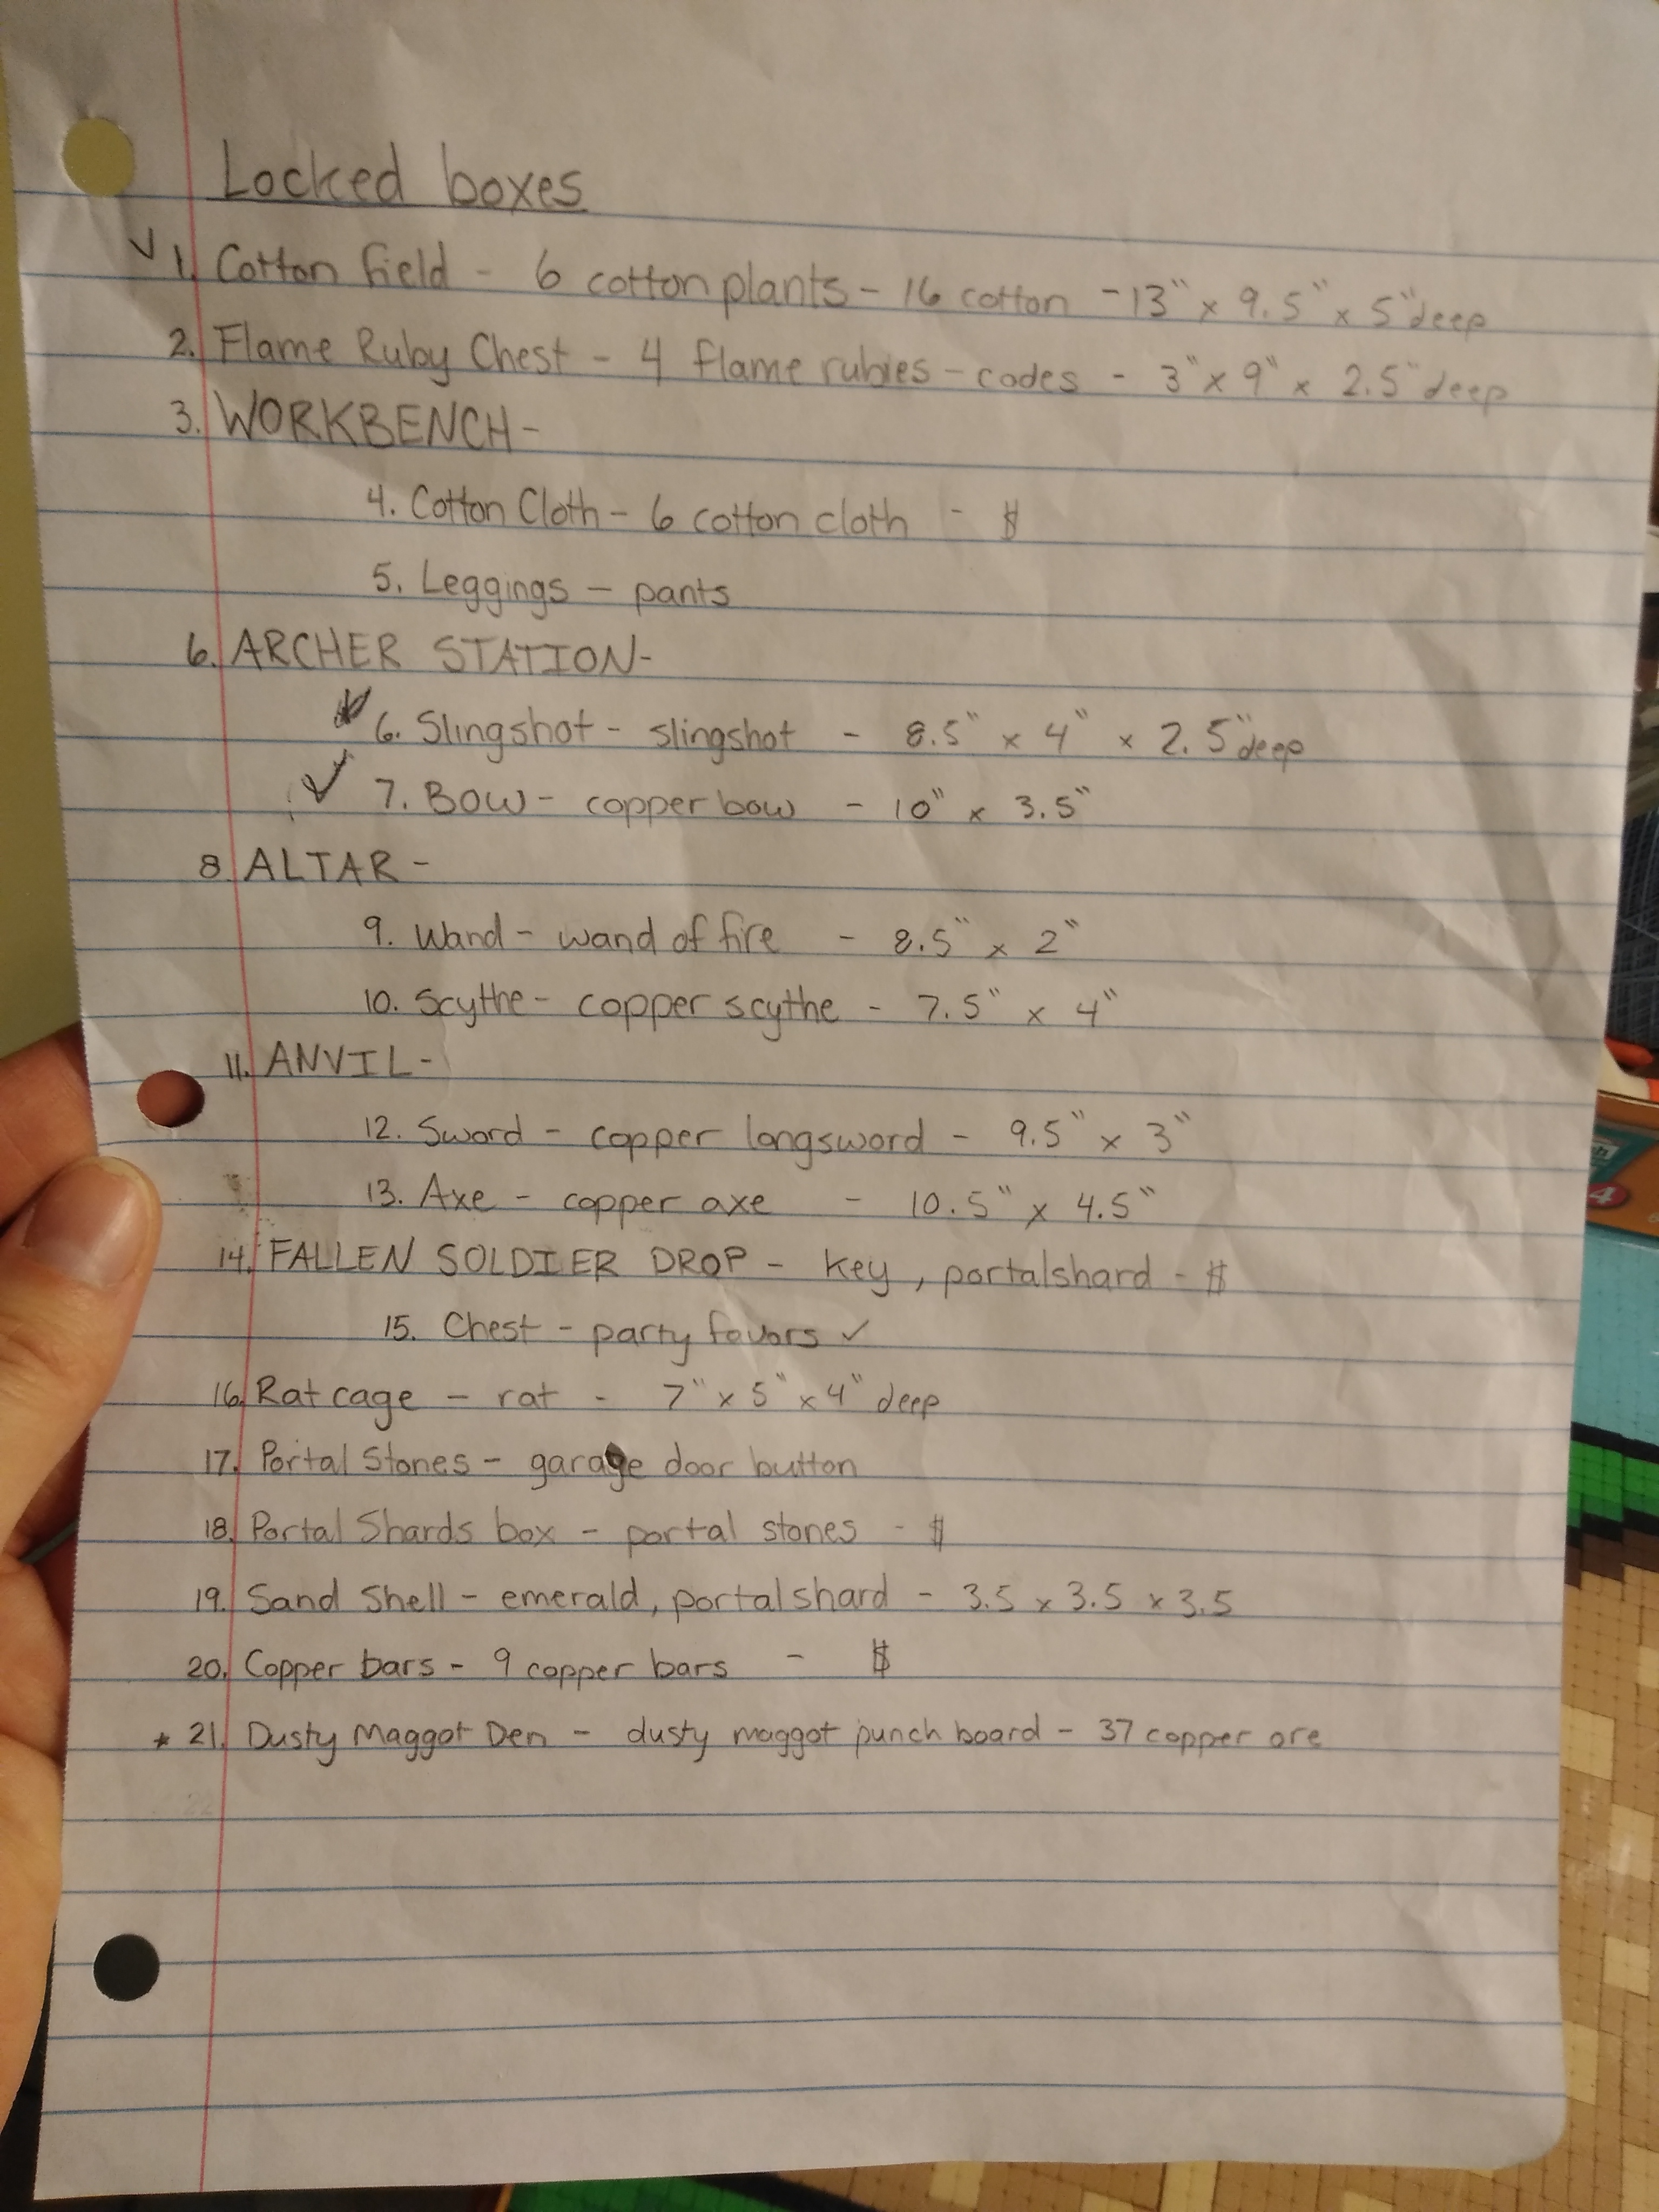 Locked boxes
✓ 1. Cotton field - 6 cotton plants - 16 cotton - 13" x 9.5" x 5" deep
2. Flame Ruby Chest - 4 flame rubies - codes - 3" x 9" x 2.5" deep
3. WORKBENCH -
4. Cotton Cloth - 6 cotton cloth - $
5. Leggings - pants
6. ARCHER STATION -
✓ 6. Slingshot - slingshot - 8.5" x 4" x 2.5" deep
✓ 7. Bow - copper bow - 10" x 3.5"
8 ALTAR -
9. Wand - wand of fire - 8.5" x 2"
10. Scythe - copper scythe - 7.5" x 4"
11. ANVIL -
12. Sword - copper longsword - 9.5" x 3"
13. Axe - copper axe - 10.5" x 4.5"
14. FALLEN SOLDIER DROP - key, portal shard - $
15. Chest - party favors ✓
16. Rat cage - rat - 7" x 5" x 4" deep
17. Portal Stones - garage door button
18. Portal Shards box - portal stones - $
19. Sand Shell - emerald, portal shard - 3.5 x 3.5 x 3.5
20. Copper bars - 9 copper bars - $
* 21. Dusty Maggot Den - dusty maggot punch board - 37 copper ore
4